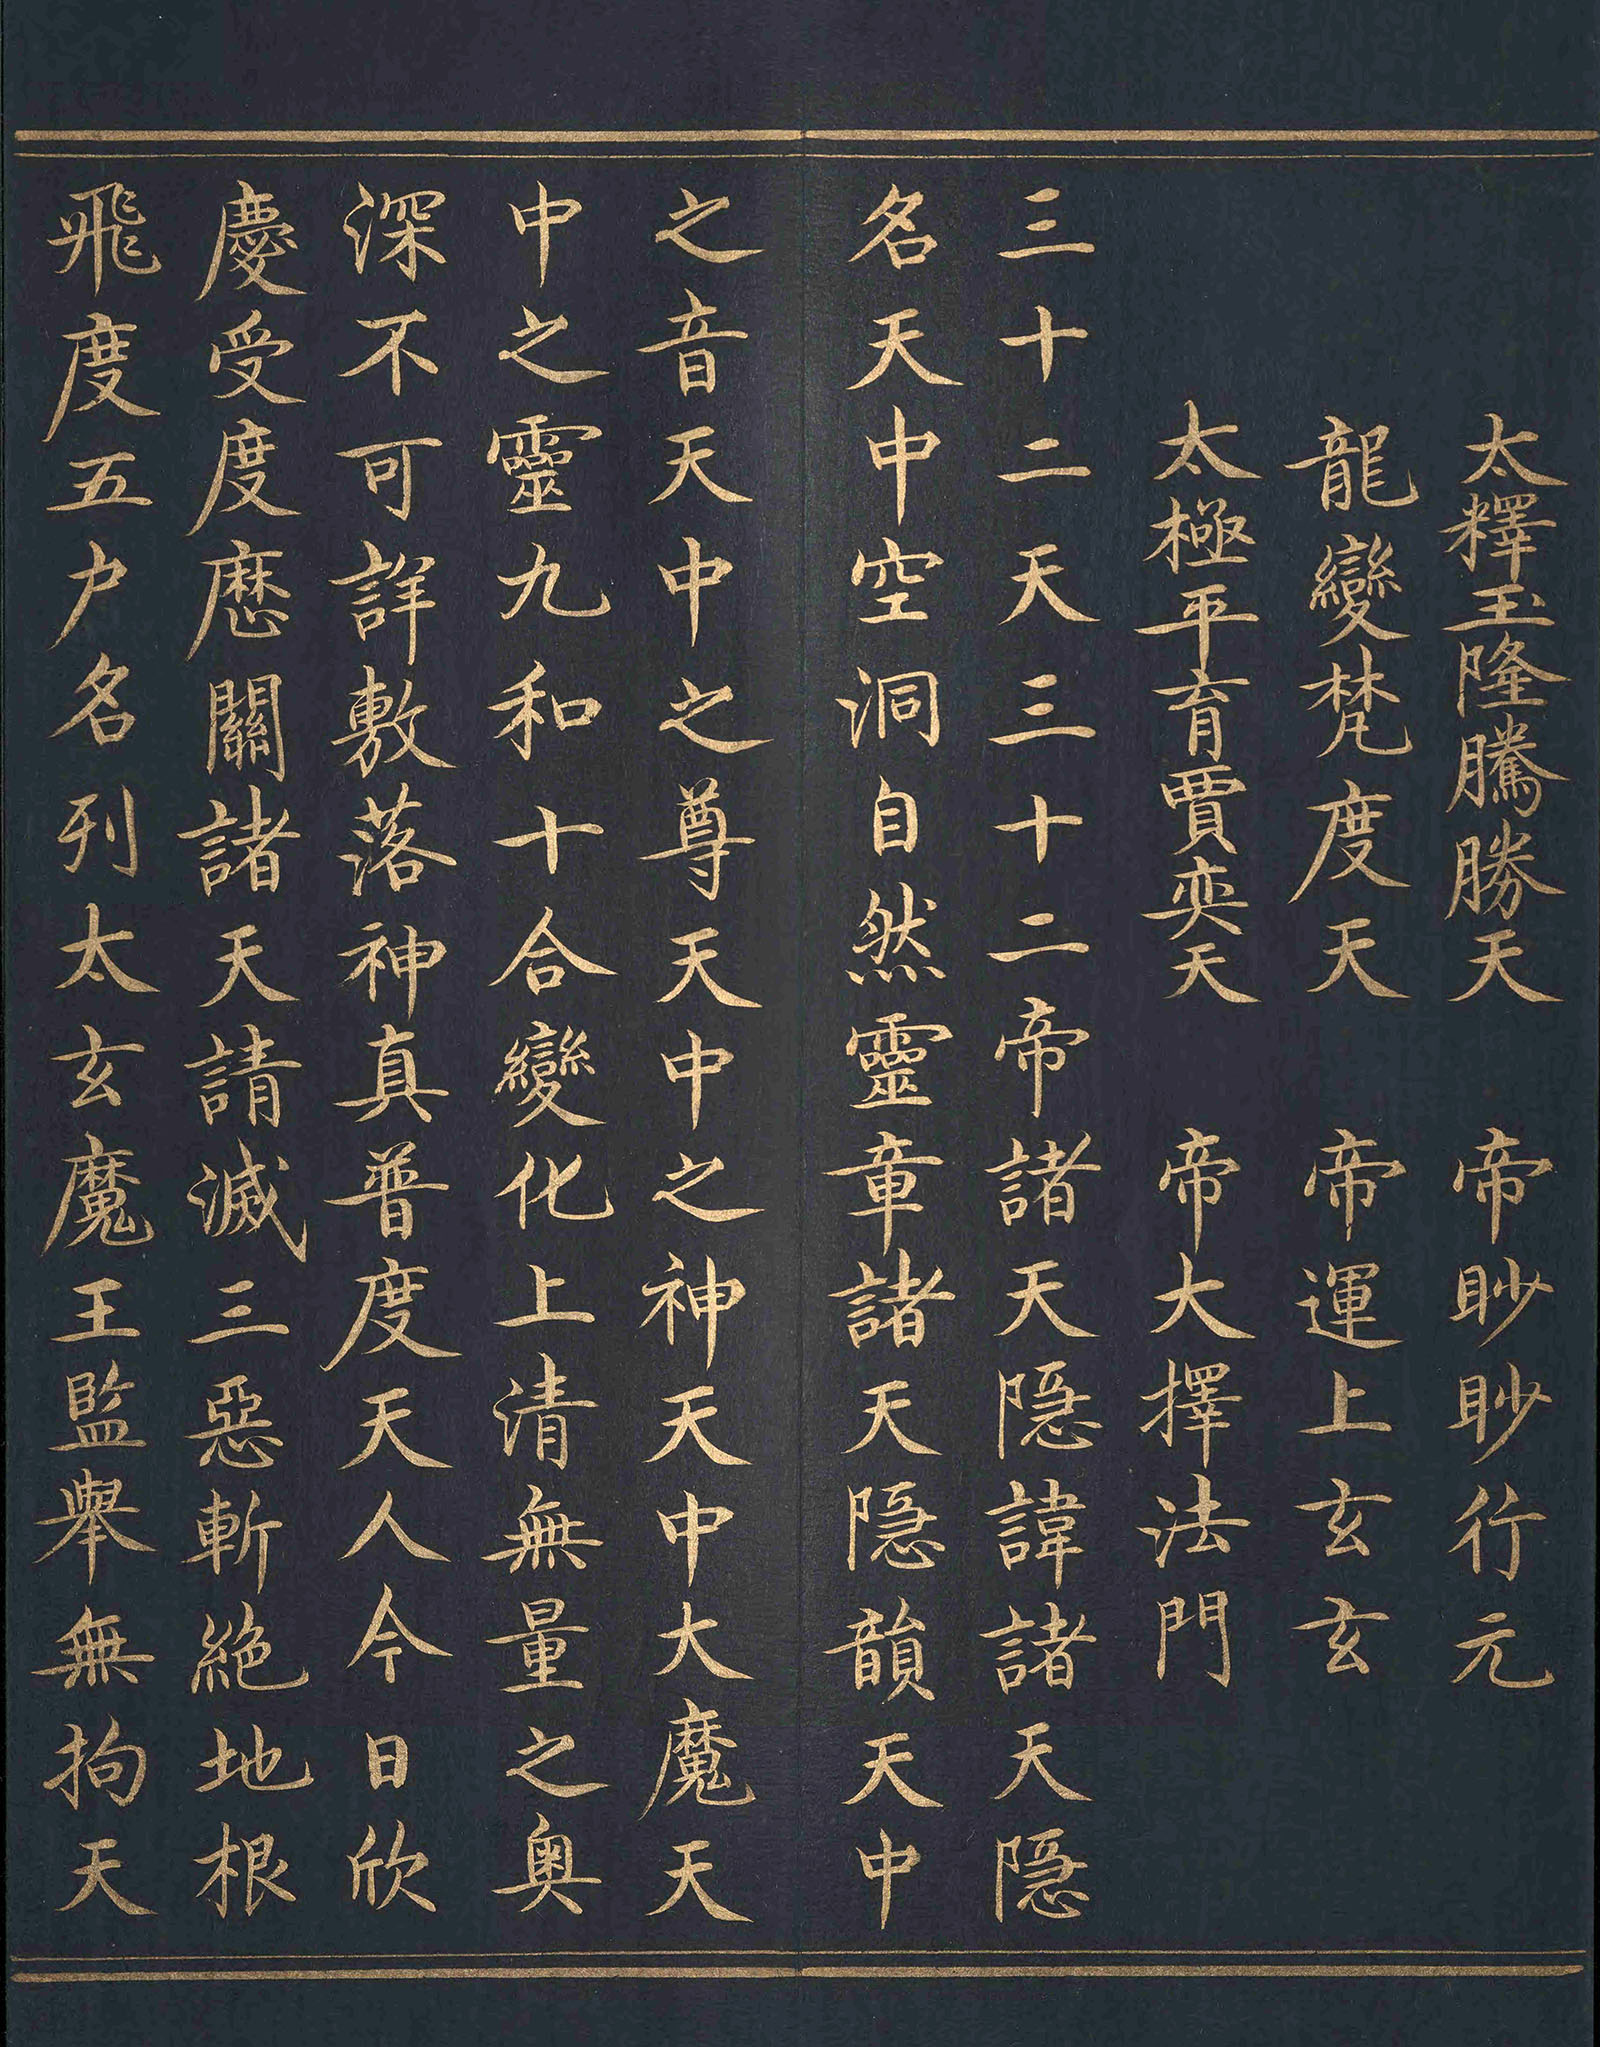 太釋玉隆騰勝天　帝眇眇行元
龍變梵度天　帝運上玄玄
太極平育賈奕天　帝大擇法門
三十二天三十二帝諸天隱諱諸天隱
名天中空洞自然靈章諸天隱韻天中
之音天中之尊天中之神天中大魔天
中之靈九和十合變化上清無量之奧
深不可詳敷落神真普度天人今日欣
慶受度歷關諸天請滅三惡斬絕地根
飛度五户名列太玄魔王監舉無拘天